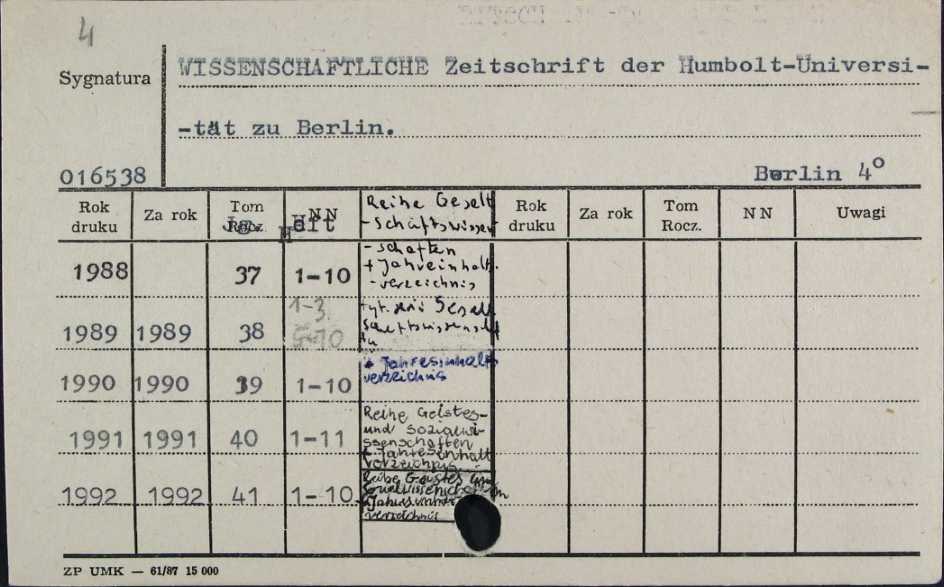 4
Sygnatura
WISSENSCHAFTLICHE Zeitschrift der Humbolt-Universi-
-tät zu Berlin.
016538
Berlin 4°
Rok druku Za rok Tom Rocz. NN Rok druku Za rok Tom Rocz. NN Uwagi
Jg. Heft
Reihe Gesell
-schaftswissen
-schaften
+ Jahreinhalt.
-verzeichnis
1988 37 1-10
1989 1989 38 1-3
5-10
+ Jahresinhalts
verzeichnis
1990 1990 39 1-10
Reihe Geistes-
und Sozialwi-
ssenschaften
+ Jahresinhalt
verzeichnis
1991 1991 40 1-11
Reihe Geistes
verzeichnis
1992 1992 41 1-10
ZP UMK — 61/87 15 000